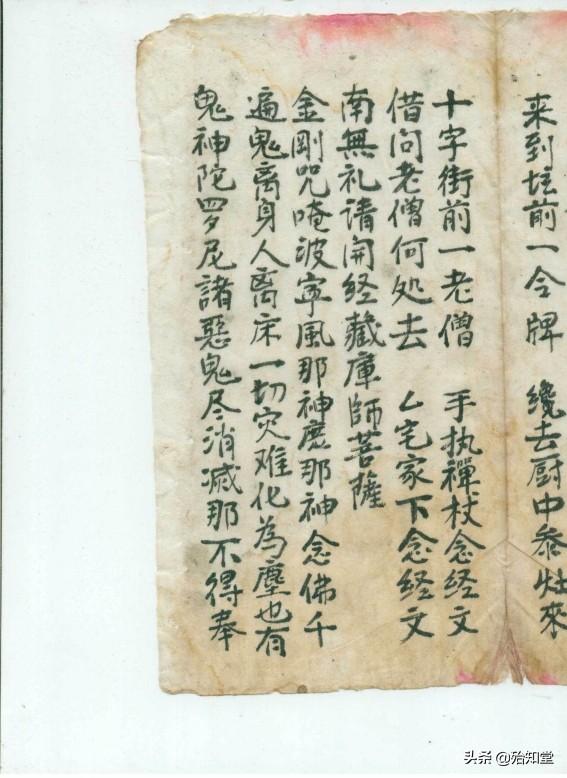 来到坛前一令牌 纔去厨中参灶來
十字街前一老僧 手执禪杖念经文
借问老僧何处去 厶宅家下念经文
南無礼请開经藏庫師菩薩
金剛咒唵波寧風那神麽那神念佛千
遍鬼离身人离床一切灾难化為塵也有
鬼神陀罗尼諸惡鬼尽消滅那不得奉
头条 @殆知堂